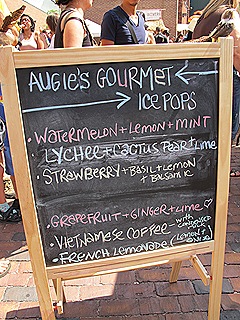 AUGIE'S GOURMET
ICE POPS
• WATERMELON + LEMON + MINT
LYCHEE + CACTUS PEAR + LIME
• STRAWBERRY + BASIL + LEMON
+ BALSAMIC
• GRAPEFRUIT + GINGER + LIME ♡
• VIETNAMESE COFFEE - with CONDENSED
• FRENCH LEMONADE (LEMON +